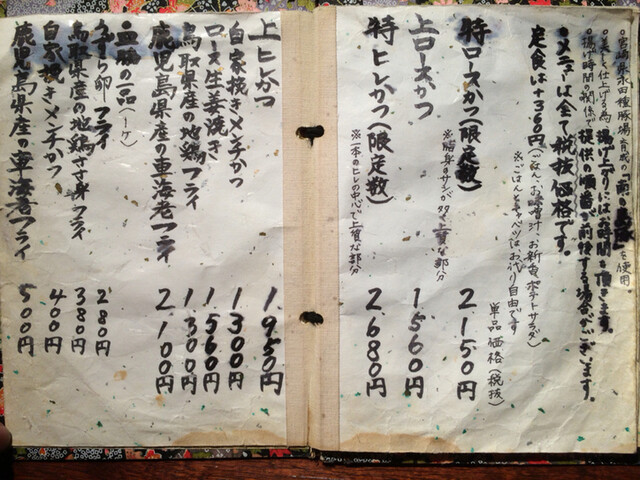 ・宮崎県永田種豚場育成の「南の島豚」を使用。
・美しく仕上げる為、揚げ上りには時間を頂きます。
・揚げ時間の関係で提供の順番が前後する場合がございます。
・メニューは全て税抜価格です。
定食は+360円(ごはん、お味噌汁、お新香、ポテトサラダ)
※ごはんとキャベツはおかわり自由です
単品価格(税抜)
特ロースかつ(限定数) 2,150円
※脂身のサシが多く上質な部分
上ロースかつ 1,560円
特ヒレかつ(限定数) 2,680円
※一本のヒレの中心で上質な部分
上ヒレかつ 1,950円
自家挽きメンチかつ 1,300円
ロース生姜焼き 1,560円
鳥取県産の地鶏フライ 1,300円
鹿児島県産の車海老フライ 2,100円
皿脇の一品(一ケ)
うずら卵フライ 280円
鳥取県産の地鶏ささ身フライ 380円
自家挽きメンチかつ 400円
鹿児島県産の車海老フライ 500円